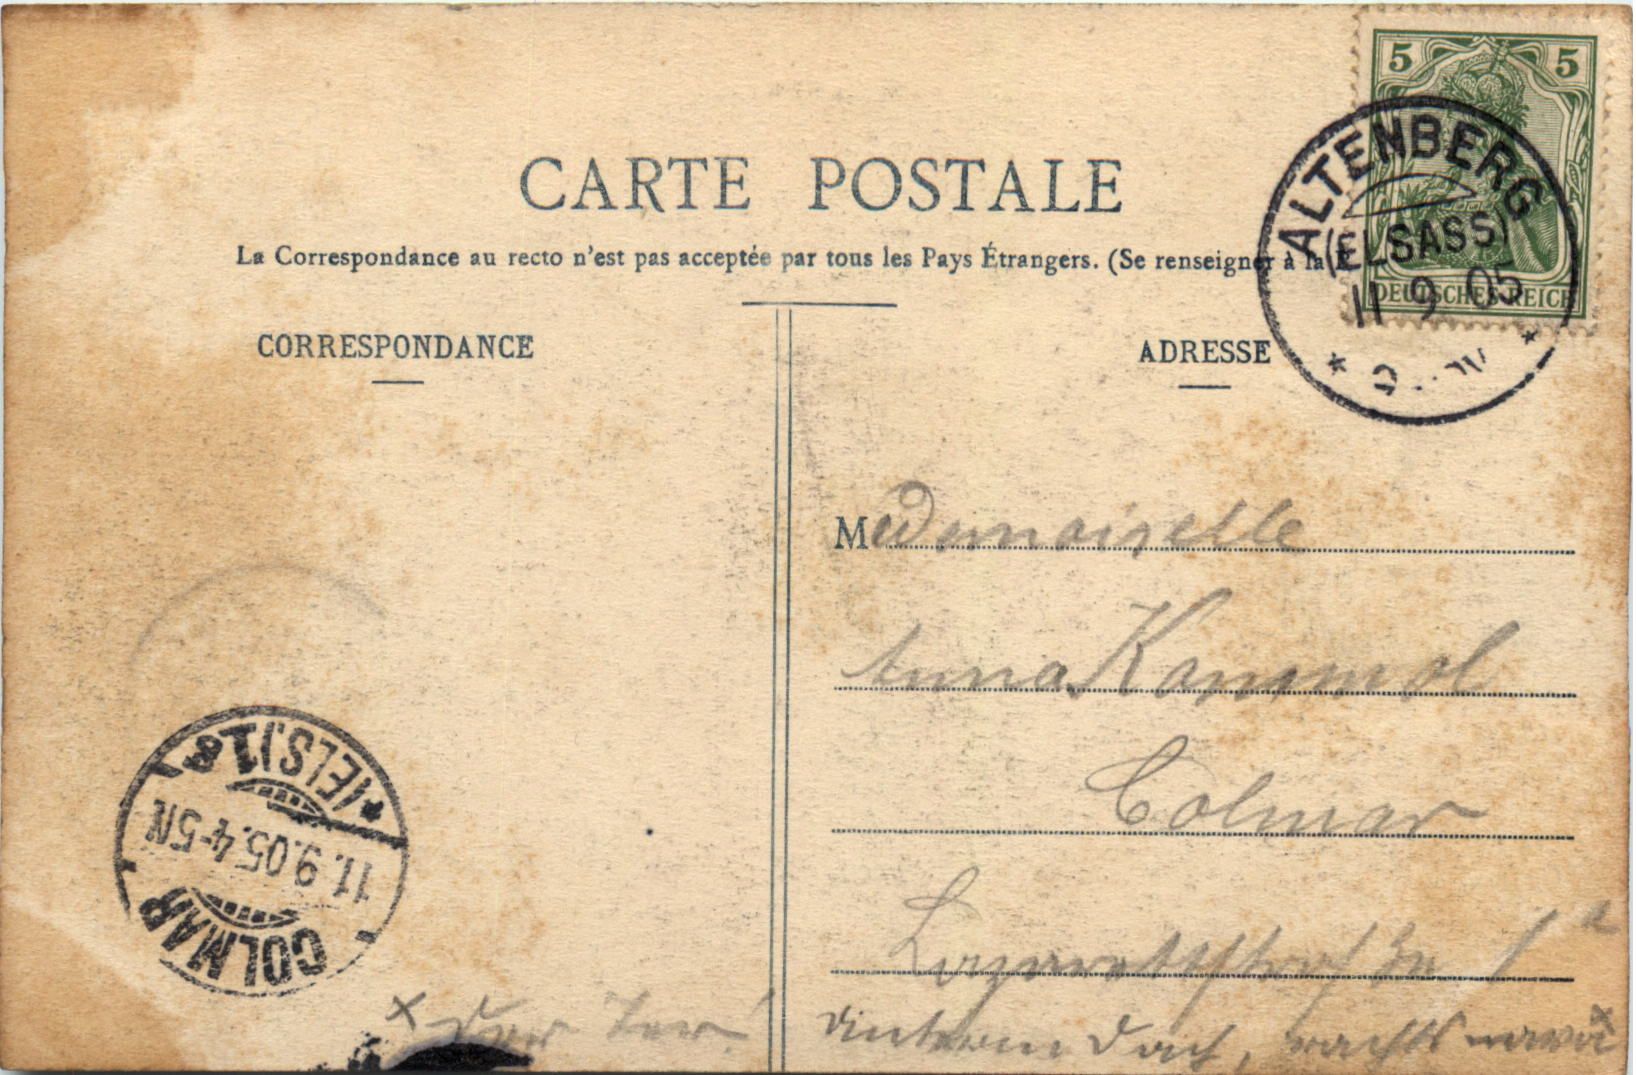 CARTE POSTALE
La Correspondance au recto n'est pas acceptée par tous les Pays Étrangers. (Se renseigner à la
5 5
DEUTSCHES REICH
ALTENBERG
(ELSASS)
11 9 05
CORRESPONDANCE
ADRESSE
Mademoiselle
Anna Kammol
Colmar
1a
COLMAR
11.9.05.4-5N
*(ELS.)1g